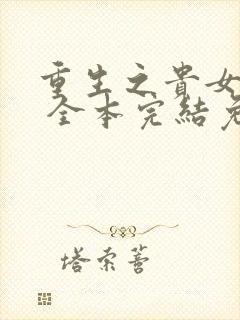 重生之貴女
全本完結
塔索